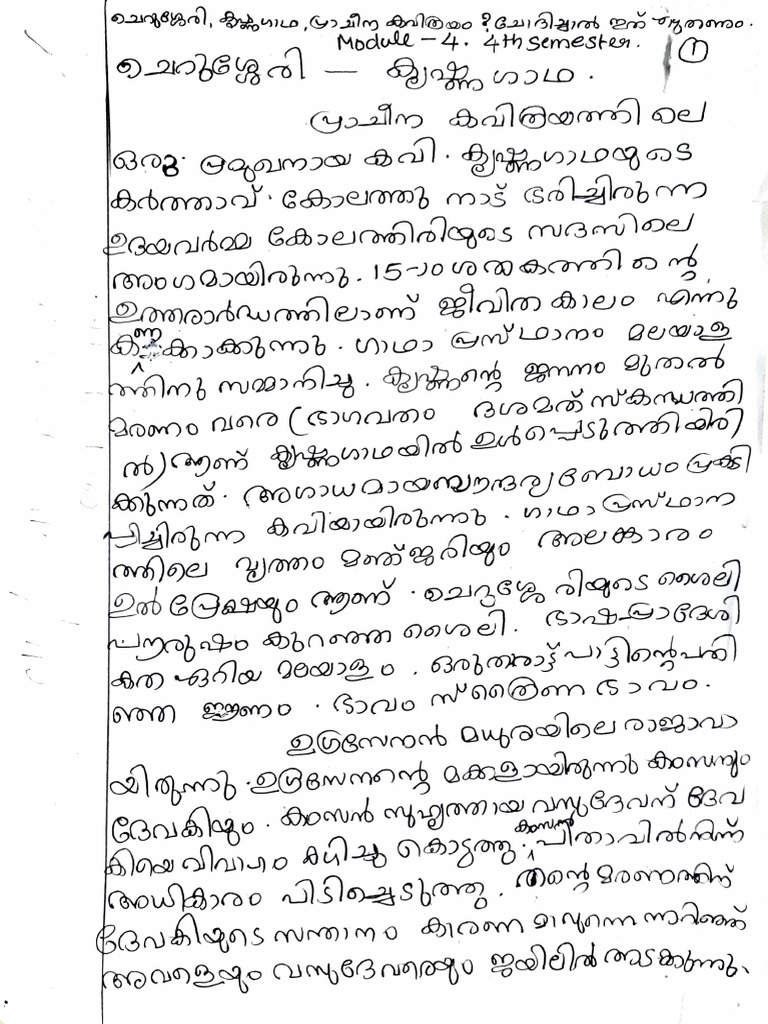 ചെറുശ്ശേരി, കൃഷ്ണഗാഥ, പ്രാചീന കവിത്രയം ? ചോദിച്ചാൽ ഇത് എഴുതണം.
Module - 4. 4th semester. 1
ചെറുശ്ശേരി — കൃഷ്ണ ഗാഥ.
പ്രാചീന കവിത്രയത്തി ലെ
ഒരു പ്രമുഖനായ കവി. കൃഷ്ണഗാഥയുടെ
കർത്താവ്. കോലത്തു നാട് ഭരിച്ചിരുന്ന
ഉദയവർമ്മ കോലത്തിരിയുടെ സദസിലെ
അംഗമായിരുന്നു. 15-ാം ശതകത്തിന്റെ
ഉത്തരാർദ്ധത്തിലാണ് ജീവിത കാലം എന്നു
കണ്ണക്കാക്കുന്നു. ഗാഥാ പ്രസ്ഥാനം മലയാള
ത്തിനു സമ്മാനിച്ചു. കൃഷ്ണന്റെ ജനനം മുതൽ
മരണം വരെ (ഭാഗവതം ദശമത് സ്കന്ധത്തി
ൽ) ആണ് കൃഷ്ണഗാഥയിൽ ഉൾപ്പെടുത്തിയിരി
ക്കുന്നത്. അഗാധമായ സൗന്ദര്യബോധം പ്രകടി
പ്പിച്ചിരുന്ന കവിയായിരുന്നു. ഗാഥാ പ്രസ്ഥാന
ത്തിലെ വൃത്തം മഞ്ജരിയും അലങ്കാരം
ഉൽ പ്രേക്ഷയും ആണ്. ചെറുശ്ശേ രിയുടെ ശൈലി
പൗരുഷം കുറഞ്ഞ ശൈലി. ഭാഷ പ്രാദേശി
കത ഏറിയ മലയാളം. ഒരു താരാട്ട് പാട്ടിന്റെ പതി
ഞ്ഞ ഈണം. ഭാവം സ്ത്രൈണ ഭാവം.
ഉഗ്രസേനൻ മധുരയിലെ രാജാവാ
യിരുന്നു. ഉഗ്രസേനന്റെ മക്കളായിരുന്നു കംസനും
ദേവകിയും. കംസൻ സുഹൃത്തായ വസുദേവന് ദേവ
കിയെ വിവാഹം കഴിച്ചു കൊടുത്തു. കംസൻ പിതാവിൽ നിന്ന്
അധികാരം പിടിച്ചെടുത്തു. തന്റെ മരണത്തിന്
ദേവകിയുടെ സന്താനം കാരണ മാവുന്നെന്നറിഞ്ഞ്
അവളെയും വസുദേവരെയും ജയിലിൽ അടക്കുന്നു.